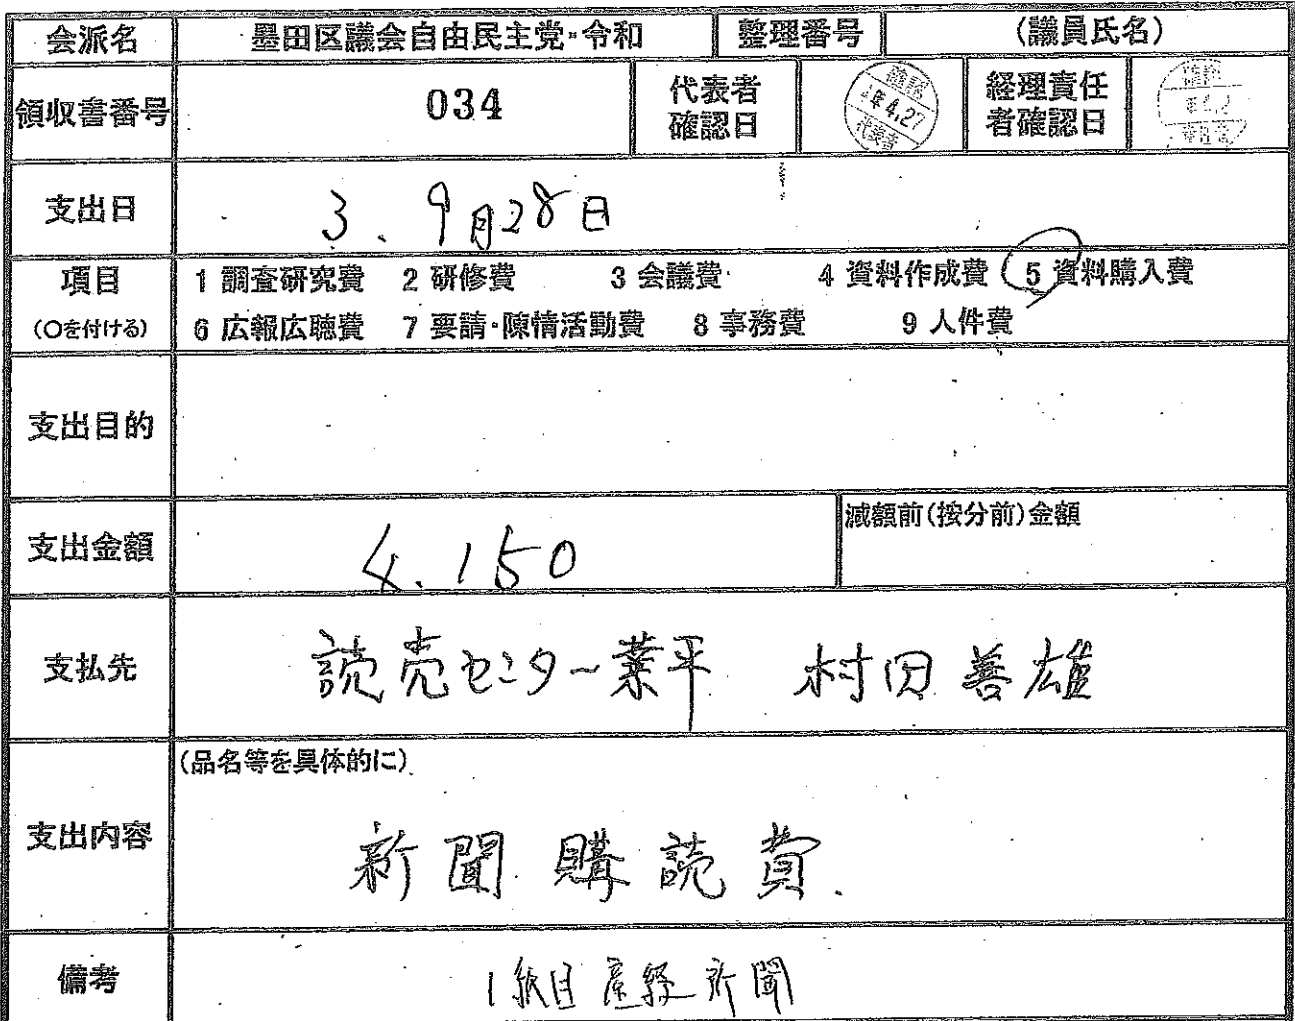 会派名 墨田区議会自由民主党・令和 整理番号 (議員氏名)
領収書番号 034 代表者確認日 確認 4.27 代表者 経理責任者確認日
支出日 3. 9月28日
項目 1 調査研究費 2 研修費 3 会議費 4 資料作成費 5 資料購入費
(○を付ける) 6 広報広聴費 7 要請・陳情活動費 8 事務費 9 人件費
支出目的
支出金額 4.150 減額前(按分前)金額
支払先 読売センター業平 村田善雄
支出内容 (品名等を具体的に)
新聞購読費.
備考 1紙目産経新聞